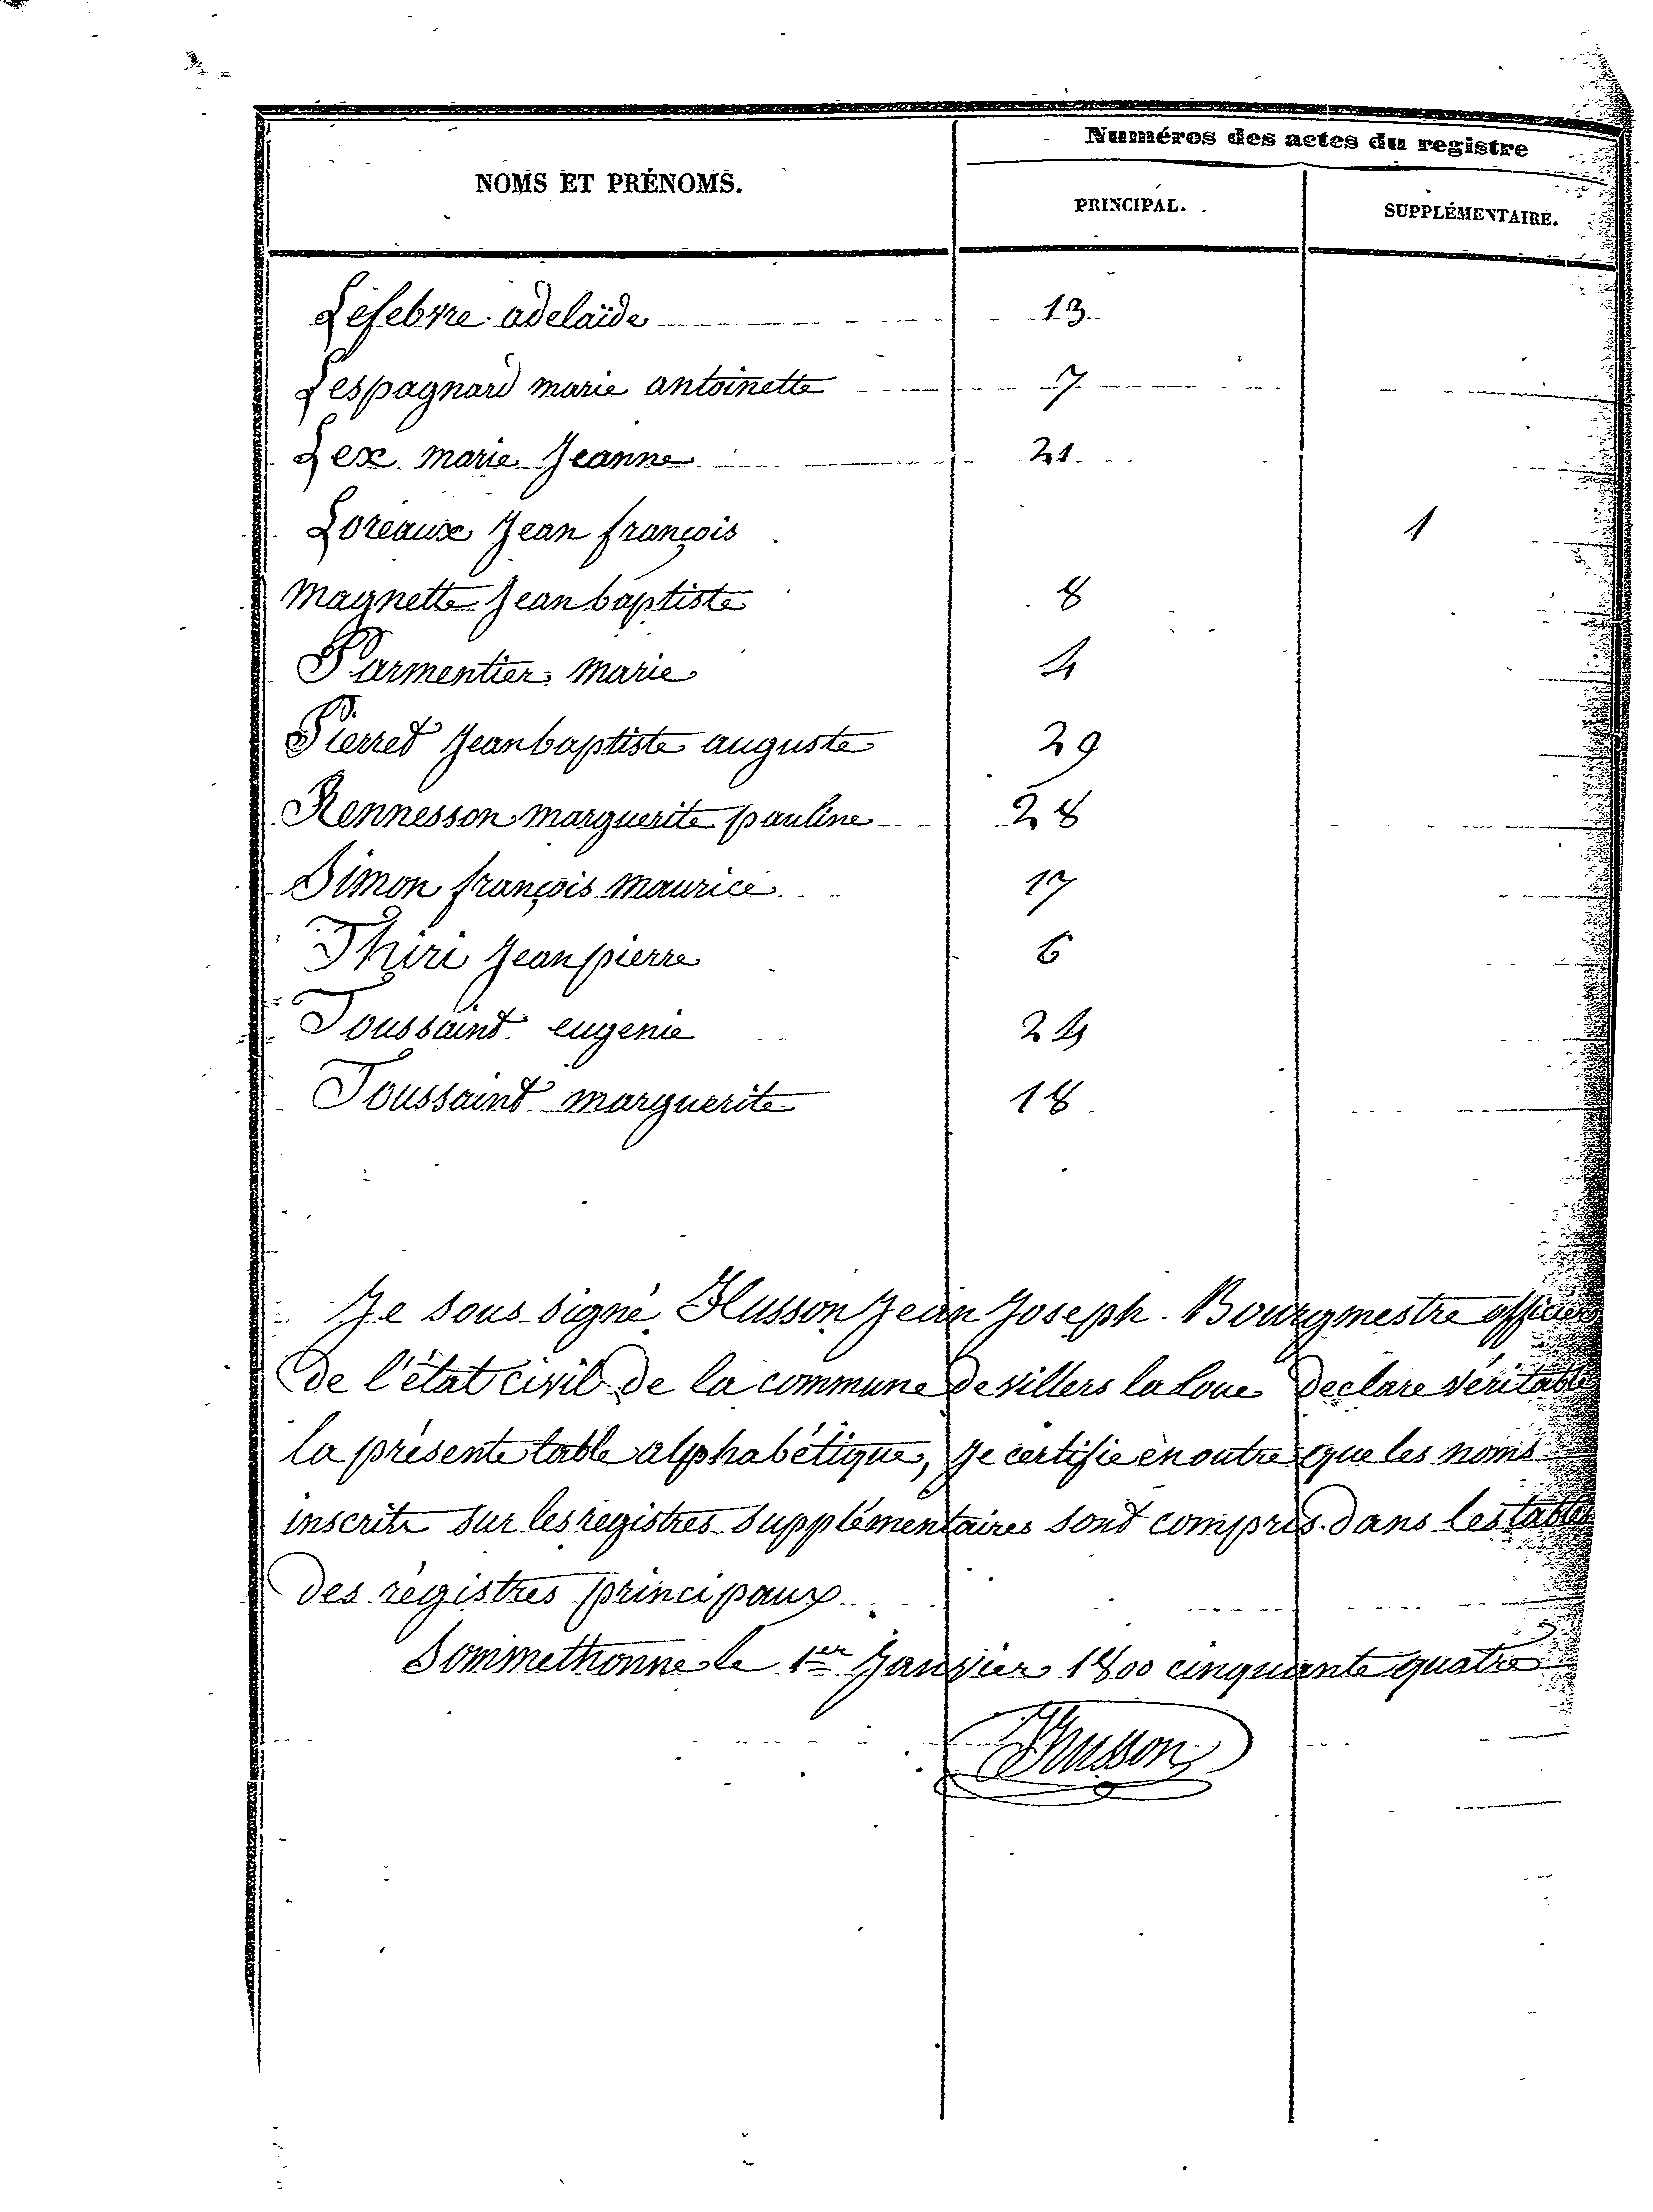 Numéros des actes du registre
NOMS ET PRÉNOMS.
PRINCIPAL.
SUPPLÉMENTAIRE.
Lefebvre adelaïde 13
Lespagnard marie antoinette 7
Lex marie Jeanne 21
Loreaux Jean françois 1
Magnette Jean baptiste 8
Parmentier marie 4
Pierret Jean baptiste auguste 29
Rennesson marguerite pauline 28
Simon françois maurice 17
Thiri Jean pierre 6
Toussaint eugenie 24
Toussaint marguerite 18
Je sous signé Husson Jean Joseph. Bourgmestre officier
de l'état civil de la commune de villers la loue declare véritable
la présente table alphabétique, je certifie en outre que les noms
inscrits sur les registres supplémentaires sont compris dans les tables
des régistres principaux.
Sommethonne le 1er Janvier 1800 cinquante quatre
JHusson